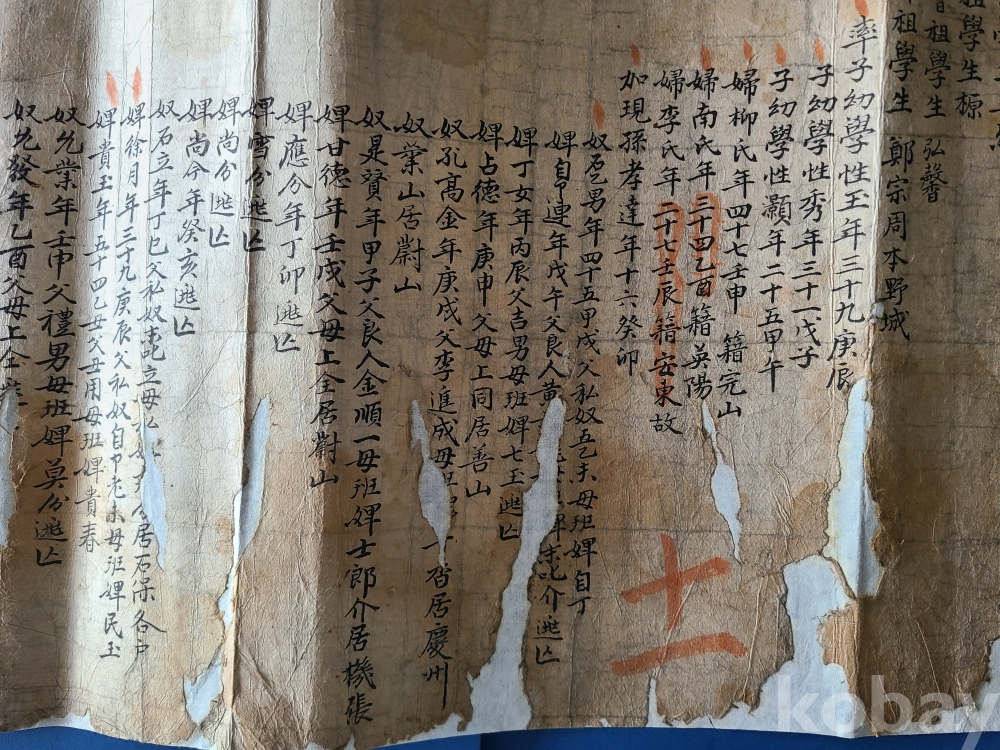 祖學生榞
祖學生弘馨
祖學生鄭宗周本野城
率子幼學性玉年三十九庚辰
子幼學性秀年三十一戊子
子幼學性灝年二十五甲午
婦柳氏年四十七壬申籍完山
婦南氏年三十四乙酉籍英陽
婦李氏年二十七壬辰籍安東故
如現孫孝達年十六癸卯
奴乭男年四十五甲戌父私奴五乙未母班婢自丁
婢自卩連年戊午父良人黃 介逃亡
婢丁女年丙辰父吉男母班婢七玉逃亡
婢占德年庚申父母上同居善山
奴孔高金年庚戌父李進成母班 居慶州
奴業山居蔚山
奴是贇年甲子父良人金順一母班婢士郎介居機張
婢甘德年壬戌父母上仝居蔚山
婢應分年丁卯逃亡
婢雪分逃亡
婢尚分逃亡
婢尚今年癸亥逃亡
奴石立年丁巳父私奴 立母 居石
婢徐月年三十九庚辰父私奴自卩老未母班婢民玉
婢貴玉年五十四乙丑父丑用母班婢貴春
奴允業年壬申父禮男母班婢莫分逃亡
奴允發年乙酉父母上仝逃
十一
kobay